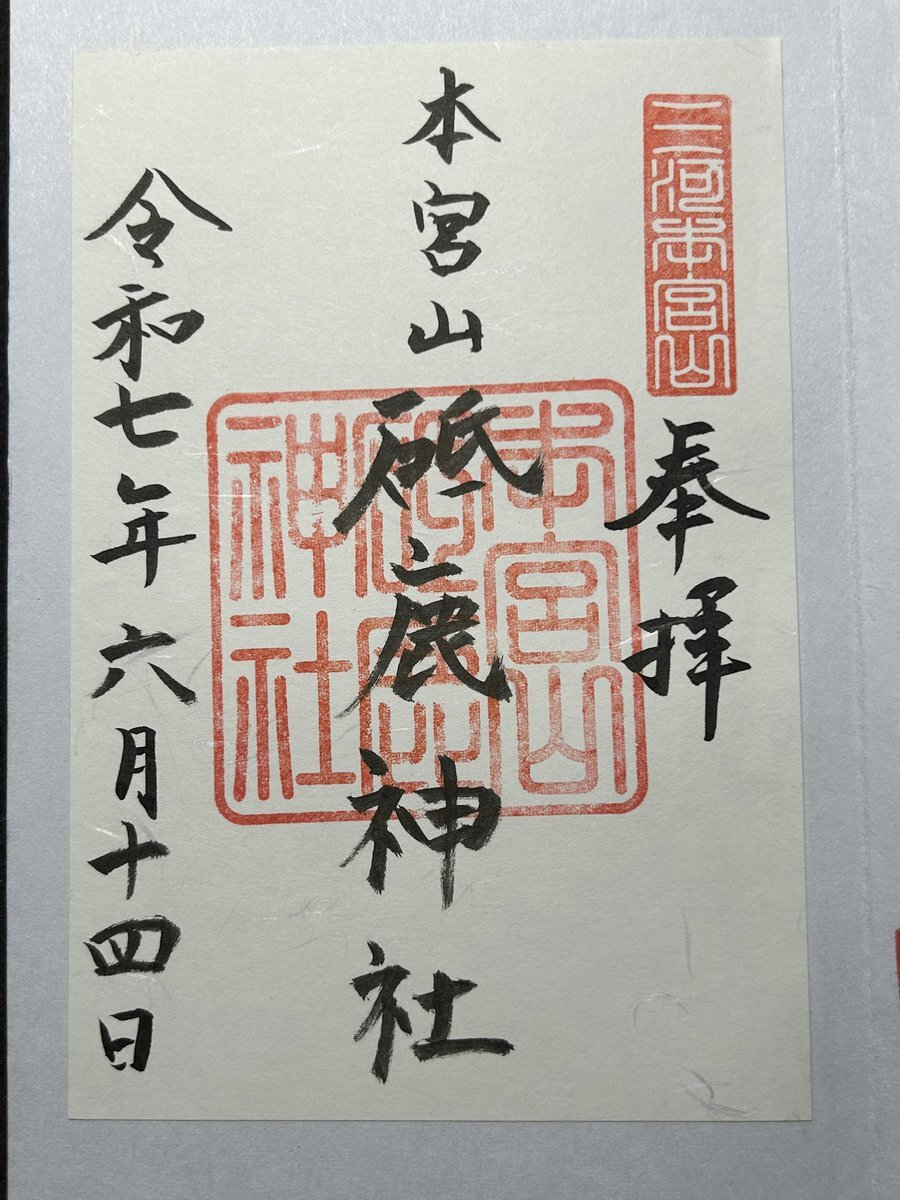 三河本宮山
奉拝
本宮山 砥鹿神社
本宮山
神社
令和七年六月十四日